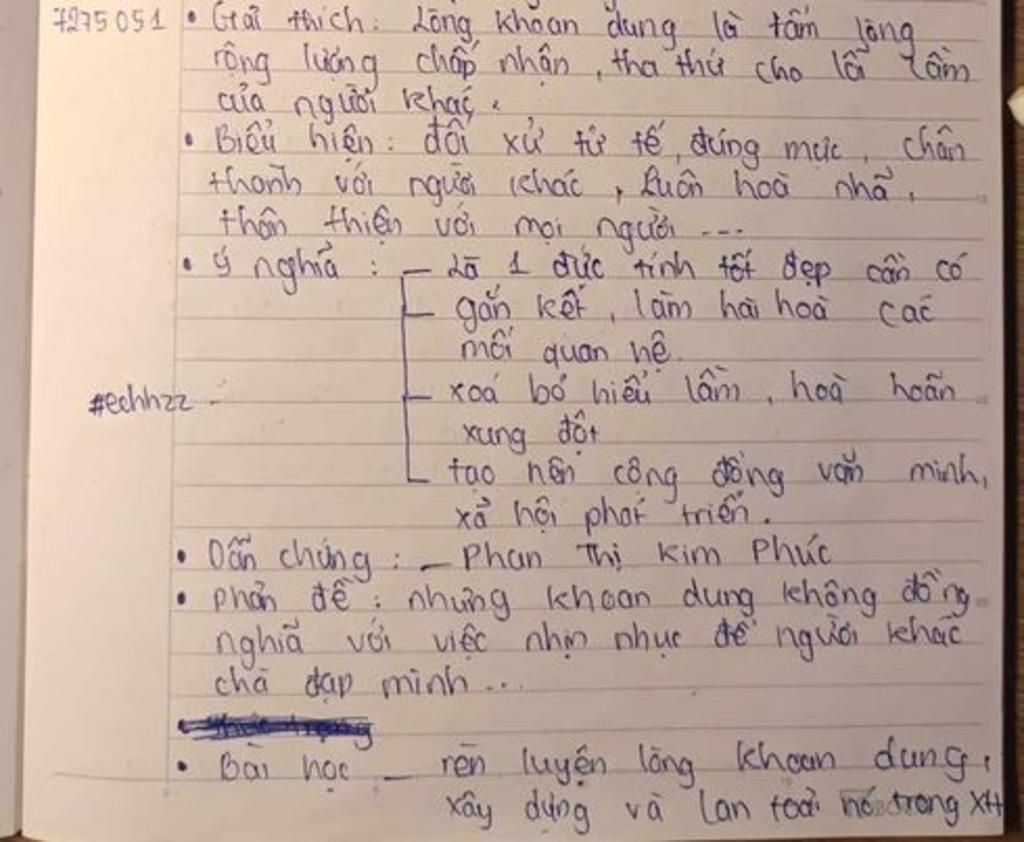 7275051 • Giải thích: Lòng khoan dung là tấm lòng
rộng lượng chấp nhận, tha thứ cho lỗi lầm
của người khác.
• Biểu hiện: đối xử tử tế, đúng mực, chân
thành với người khác, luôn hoà nhã,
thân thiện với mọi người ...
• Ý nghĩa: – Là 1 đức tính tốt đẹp cần có
– gắn kết, làm hài hoà các
mối quan hệ
#echhzz – xoá bỏ hiểu lầm, hoà hoãn
xung đột
– tạo nên cộng đồng văn minh,
xã hội phát triển.
• Dẫn chứng: – Phan Thị Kim Phúc
• phản đề: nhưng khoan dung không đồng
nghĩa với việc nhịn nhục để người khác
chà đạp mình...
• Bài học – rèn luyện lòng khoan dung,
xây dựng và lan toả nó trong XH